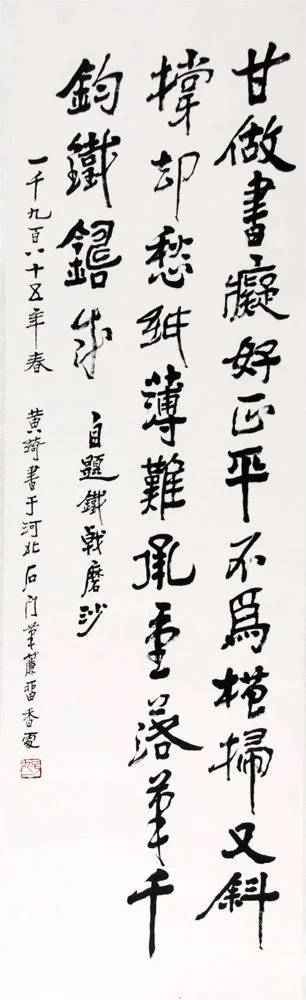 甘做書癡好正平不爲橫掃又斜
撑却愁紙薄難承重落筆千
鈞鐵鑄成
自題鐵戟磨沙
一千九百八十五年春 黄綺書于河北石门筆簾畱香處